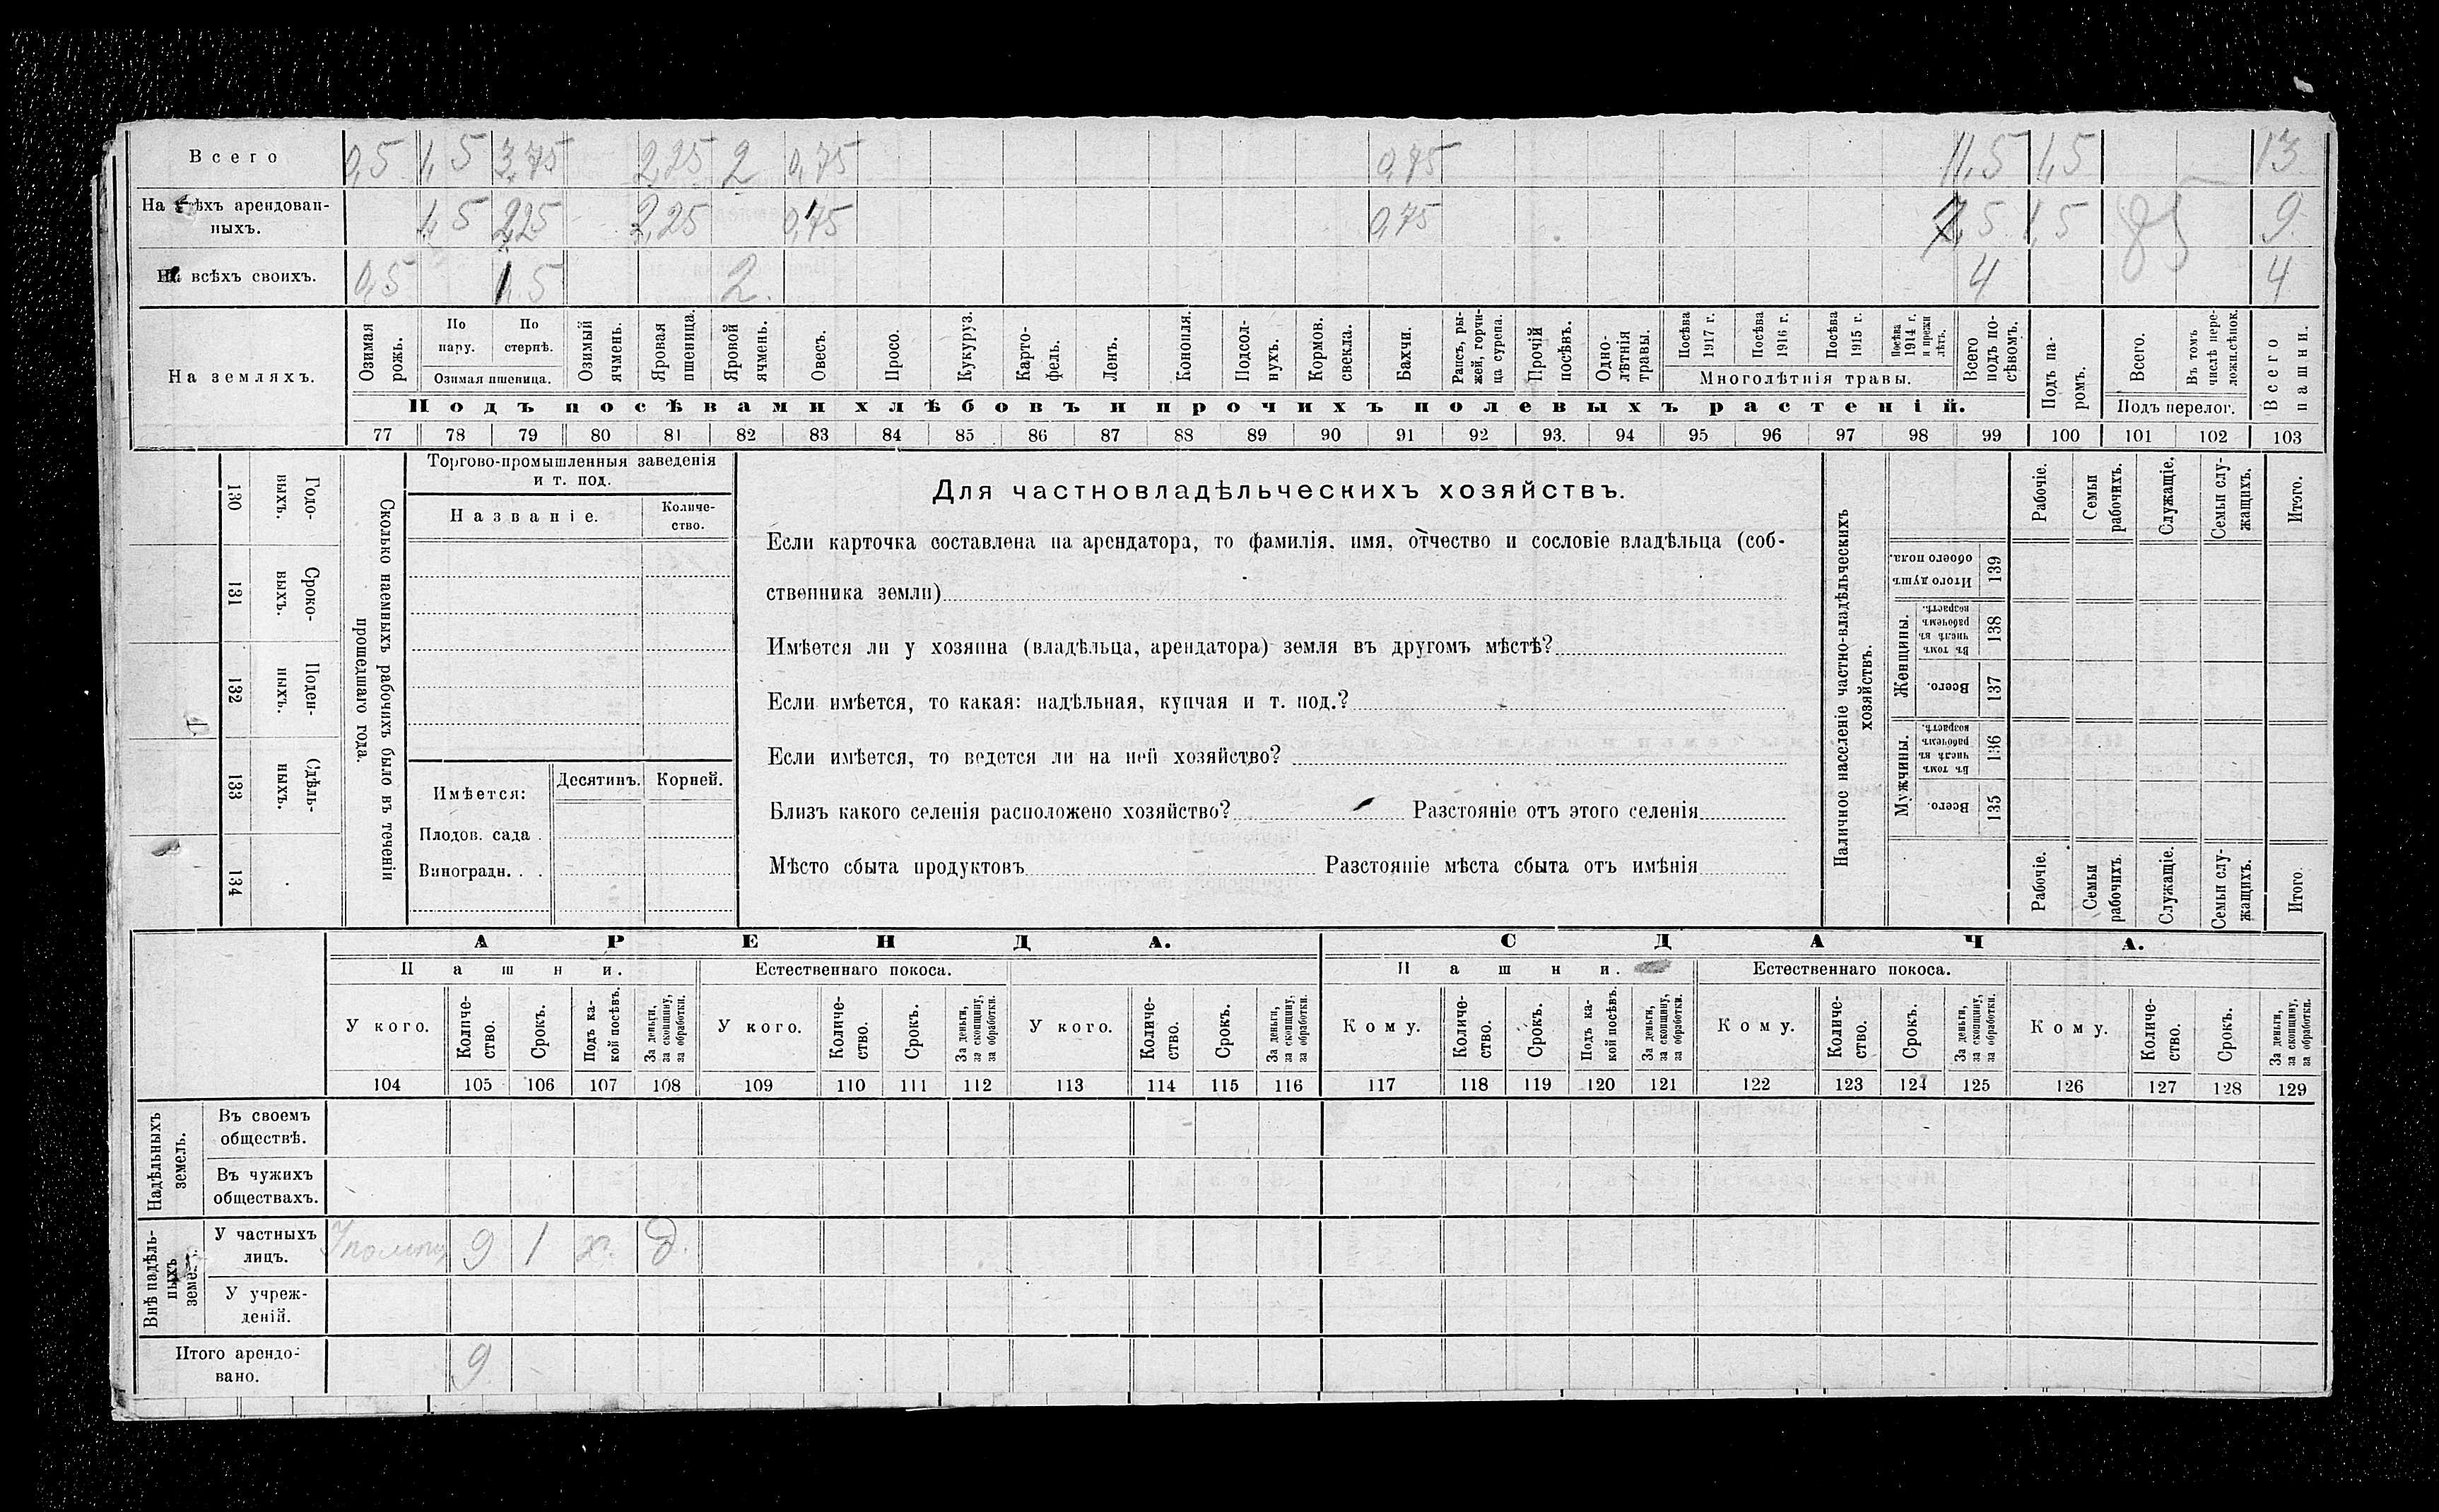 Всего 0,5 1,5 3,75 2,25 2 0,75 0,75 11,5 1,5 13
На всѣхъ арендован-
ныхъ. 1,5 2,25 2,25 0,75 0,75 7,5 1,5 9
На всѣхъ своихъ. 0,5 1,5 2. 4 4
На земляхъ.
Озимая рожь.
По пару.
По стернѣ.
Озимая пшеница.
Озимый ячмень.
Яровая пшеница.
Яровой ячмень.
Овесъ.
Просо.
Кукуруз.
Карто-
фель.
Ленъ.
Конопля.
Подсол-
нухъ.
Кормов. свекла.
Бахчи.
Рапсъ, ры-
жей, горчи-
ца сурепа.
Прочій посѣвъ.
Одно-
лѣтнія травы.
Посѣва 1917 г.
Посѣва 1916 г.
Посѣва 1915 г.
Посѣва 1914 г. и прежн лѣтъ.
Многолѣтнія травы.
Всего подъ по-
сѣвомъ.
Подъ па-
ромъ.
Всего.
Въ томъ числѣ пере-
ложн.сѣнок.
Подъ перелог.
Всего пашни.
Подъ посѣвами хлѣбовъ и прочихъ полевыхъ растеній.
77 78 79 80 81 82 83 84 85 86 87 88 89 90 91 92 93. 94 95 96 97 98 99 100 101 102 103
130 Годо-
выхъ.
131 Сроко-
выхъ.
132 Поден-
ныхъ.
133 Сдѣль-
ныхъ.
134
Сколько наемныхъ рабочихъ было въ теченіи
прошедшаго года.
Торгово-промышленныя заведенія
и т. под.
Названіе.
Количе-
ство.
Имѣется:
Десятинъ. Корней.
Плодов. сада .
Виноградн. . .
Для частновладѣльческихъ хозяйствъ.
Если карточка составлена на арендатора, то фамилія, имя, отчество и сословіе владѣльца (соб-
ственника земли)
Имѣется ли у хозяина (владѣльца, арендатора) земля въ другомъ мѣстѣ?
Если имѣется, то какая: надѣльная, купчая и т. под.?
Если имѣется, то ведется ли на ней хозяйство?
Близъ какого селенія расположено хозяйство? Разстояніе отъ этого селенія
Мѣсто сбыта продуктовъ Разстояніе мѣста сбыта отъ имѣнія
Наличное населеніе частно-владѣльческихъ
хозяйствъ.
Рабочіе.
Семьи рабочихъ.
Служащіе.
Семьи слу-
жащихъ.
Итого.
Итого душъ обоего пола. 139
Женщины.
Въ томъ числѣ въ рабочемъ возрастѣ. 138
Всего. 137
Мужчины.
Въ томъ числѣ въ рабочемъ возрастѣ. 136
Всего. 135
Рабочіе.
Семьи рабочихъ.
Служащіе.
Семьи слу-
жащихъ.
Итого.
АРЕНДА. СДАЧА.
Пашни. Естественнаго покоса. Пашни. Естественнаго покоса.
У кого.
Количе-
ство.
Срокъ.
Подъ ка-
кой посѣвъ.
За деньги, за скопщину, за обработки.
У кого.
Количе-
ство.
Срокъ.
За деньги, за скопщину, за обработки.
У кого.
Количе-
ство.
Срокъ.
За деньги, за скопщину, за обработки.
Кому.
Количе-
ство.
Срокъ.
Подъ ка-
кой посѣвъ.
За деньги, за скопщину, за обработки.
Кому.
Количе-
ство.
Срокъ.
За деньги, за скопщину, за обработки.
Кому.
Количе-
ство.
Срокъ.
За деньги, за скопщину, за обработки.
104 105 106 107 108 109 110 111 112 113 114 115 116 117 118 119 120 121 122 123 124 125 126 127 128 129
Надѣльныхъ земель.
Въ своемъ
обществѣ.
Въ чужихъ
обществахъ.
Внѣ надѣль-
ныхъ земель.
У частныхъ
лицъ. 9 1 х. д.
У учреж-
деній.
Итого арендо-
вано. 9